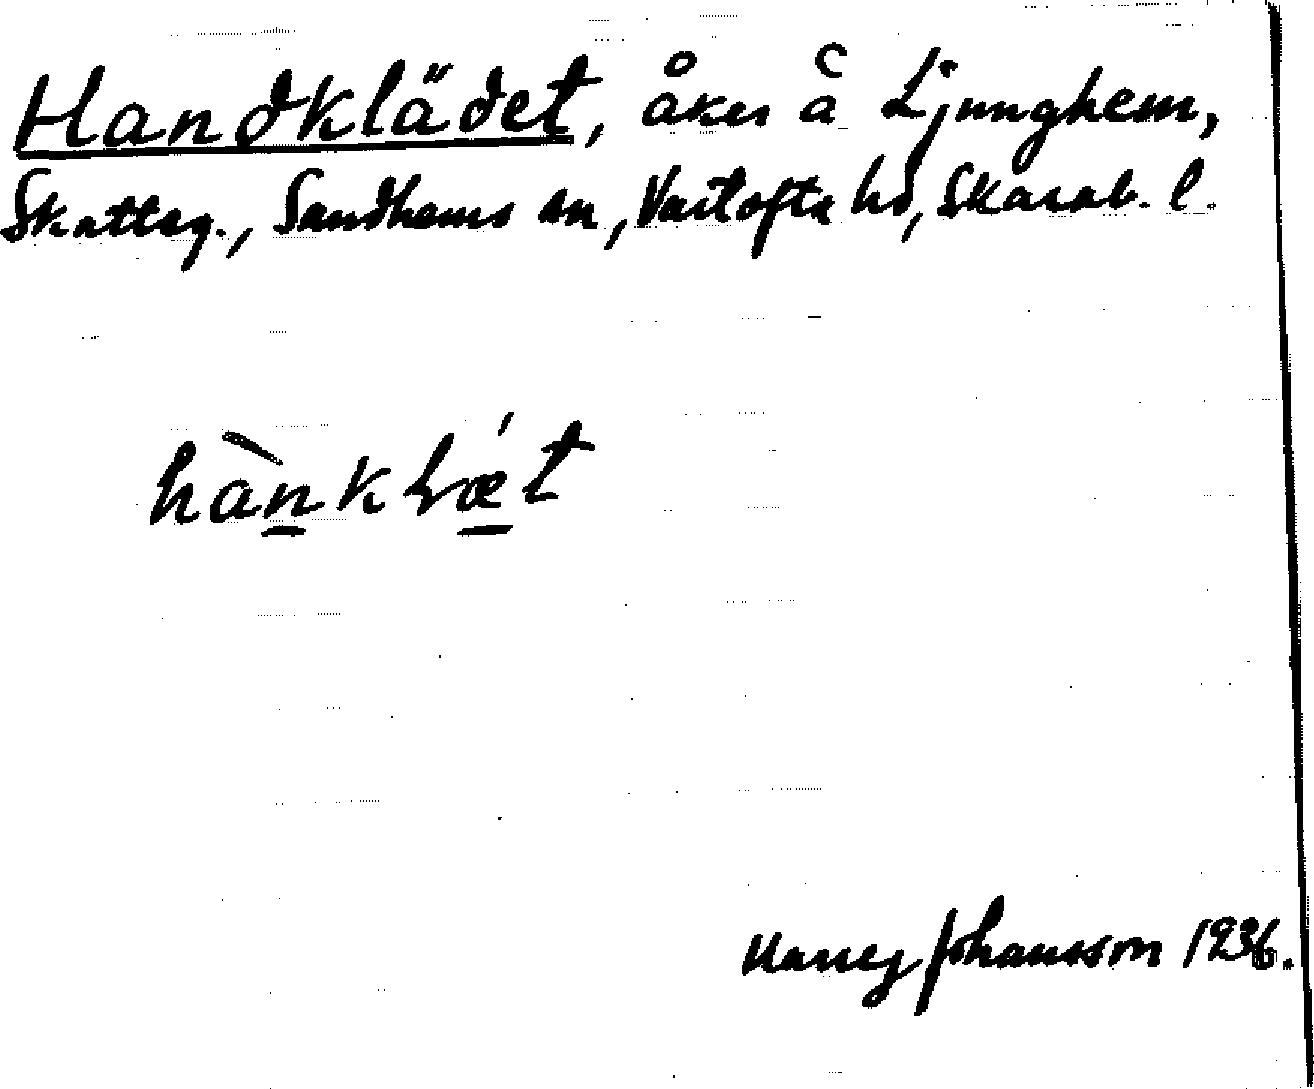 Handklädet, åker å Ljunghem,
Skatteg., Sandhems sn, Vartofta hd, Skarab. l.
hànklǽt
Nancy Johansson 1936.